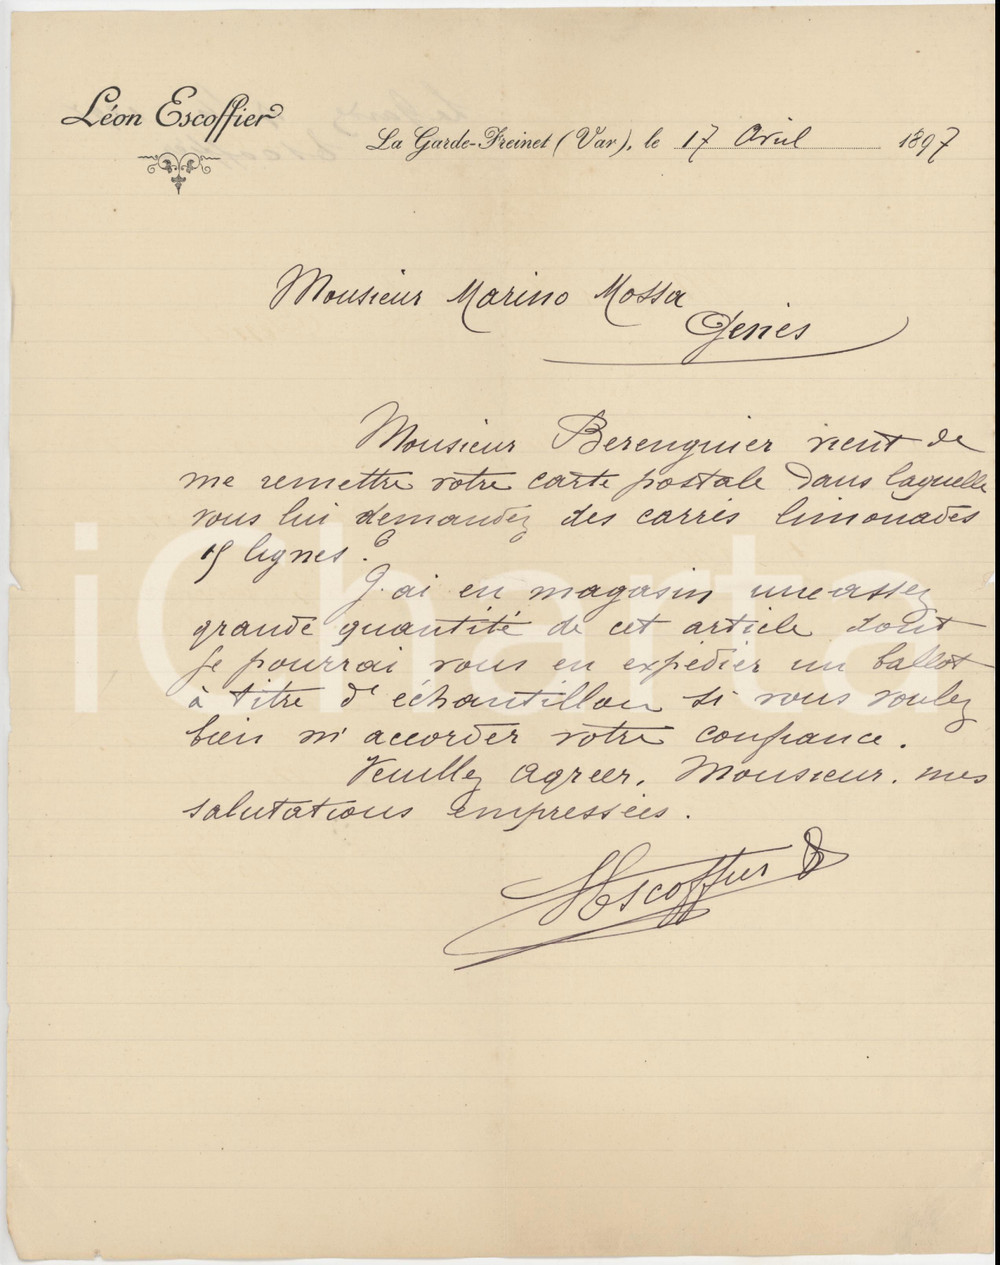 Léon Escoffier
La Garde-Freinet (Var), le 17 Avril 1897
Monsieur Marino Mossa
Gênes
Monsieur Berenguier vient de
me remettre votre carte postale dans laquelle
vous lui demandez des carrés limonades
15 lignes.
J'ai en magasin une assez
grande quantité de cet article dont
je pourrai vous en expédier un ballot
à titre d'échantillon si vous voulez
bien m'accorder votre confiance.
Veuillez agréer, Monsieur, mes
salutations empressées.
Escoffier
iCharta